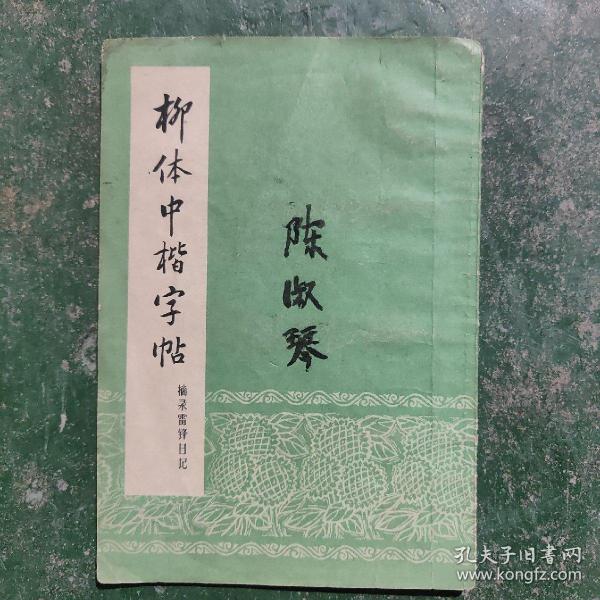 柳体中楷字帖
摘录雷锋日记
陈淑琴
孔夫子旧书网
www.kongfz.com